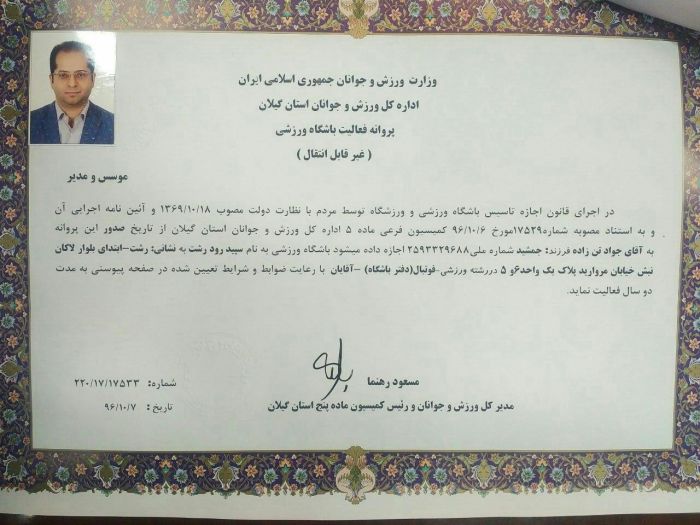 وزارت ورزش و جوانان جمهوری اسلامی ایران
اداره کل ورزش و جوانان استان گیلان
پروانه فعالیت باشگاه ورزشی
( غیر قابل انتقال )
موسس و مدیر
در اجرای قانون اجازه تاسیس باشگاه ورزشی و ورزشگاه توسط مردم با نظارت دولت مصوب ۱۳۶۹/۱۰/۱۸ و آئین نامه اجرایی آن
و به استناد مصوبه شماره۱۷۵۲۹مورخ ۹۶/۱۰/۶ کمیسیون فرعی ماده ۵ اداره کل ورزش و جوانان استان گیلان از تاریخ صدور این پروانه
به آقای جواد تن زاده فرزند: جمشید شماره ملی۲۵۹۳۳۲۹۶۸۸ اجازه داده میشود باشگاه ورزشی به نام سپید رود رشت به نشانی: رشت-ابتدای بلوار لاکان
نبش خیابان مروارید پلاک یک واحد۶و ۵ دررشته ورزشی-فوتبال(دفتر باشگاه) -آقایان با رعایت ضوابط و شرایط تعیین شده در صفحه پیوستی به مدت
دو سال فعالیت نماید.
مسعود رهنما
مدیر کل ورزش و جوانان و رئیس کمیسیون ماده پنج استان گیلان
شماره: ۲۲۰/۱۷/۱۷۵۳۳
تاریخ : ۹۶/۱۰/۷